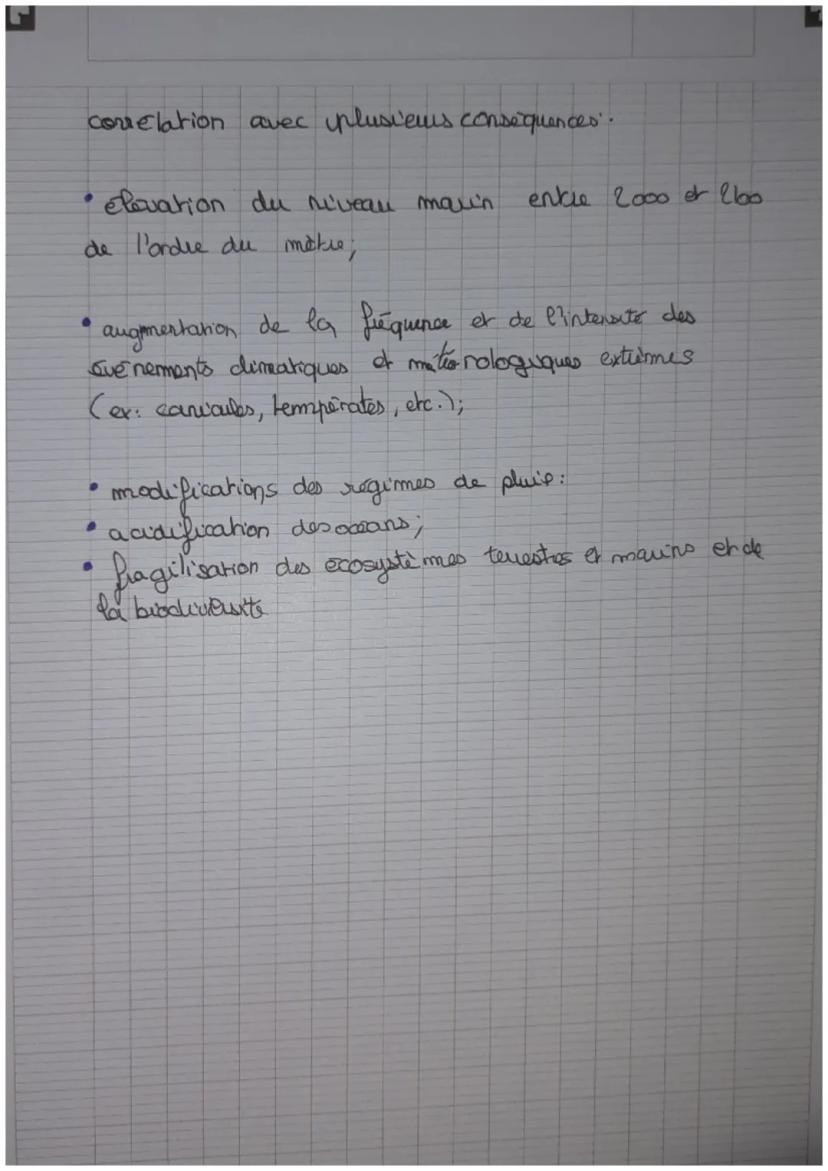 correlation avec plusieurs conséquences:
• élévation du niveau marin entre 2000 et 2100
de l'ordre du mètre;
• augmentation de la fréquence et de l'intensité des
événements climatiques et météorologiques extrêmes
(ex: canicules, températes, etc.);
• modifications des régimes de pluie:
• acidification des océans;
• fragilisation des écosystèmes terrestres et marins et de
la biodiversité